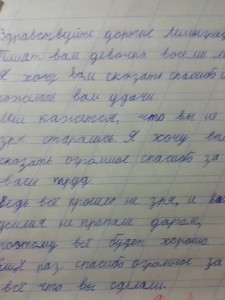 Здравствуйте дорогие Ленинград
Пишет вам девочка восьми ле
Я хочу вам сказать спасибо и
пожелать вам удачи.
Мне кажется, что вы не
зря старались. Я хочу вам
сказать огромное спасибо за
ваш труд.
ведь всё прошло не зря, и ваш
усилия не пропали даром,
поэтому всё будет хорошо
ещё раз спасибо огромное за
всё что вы сделали.